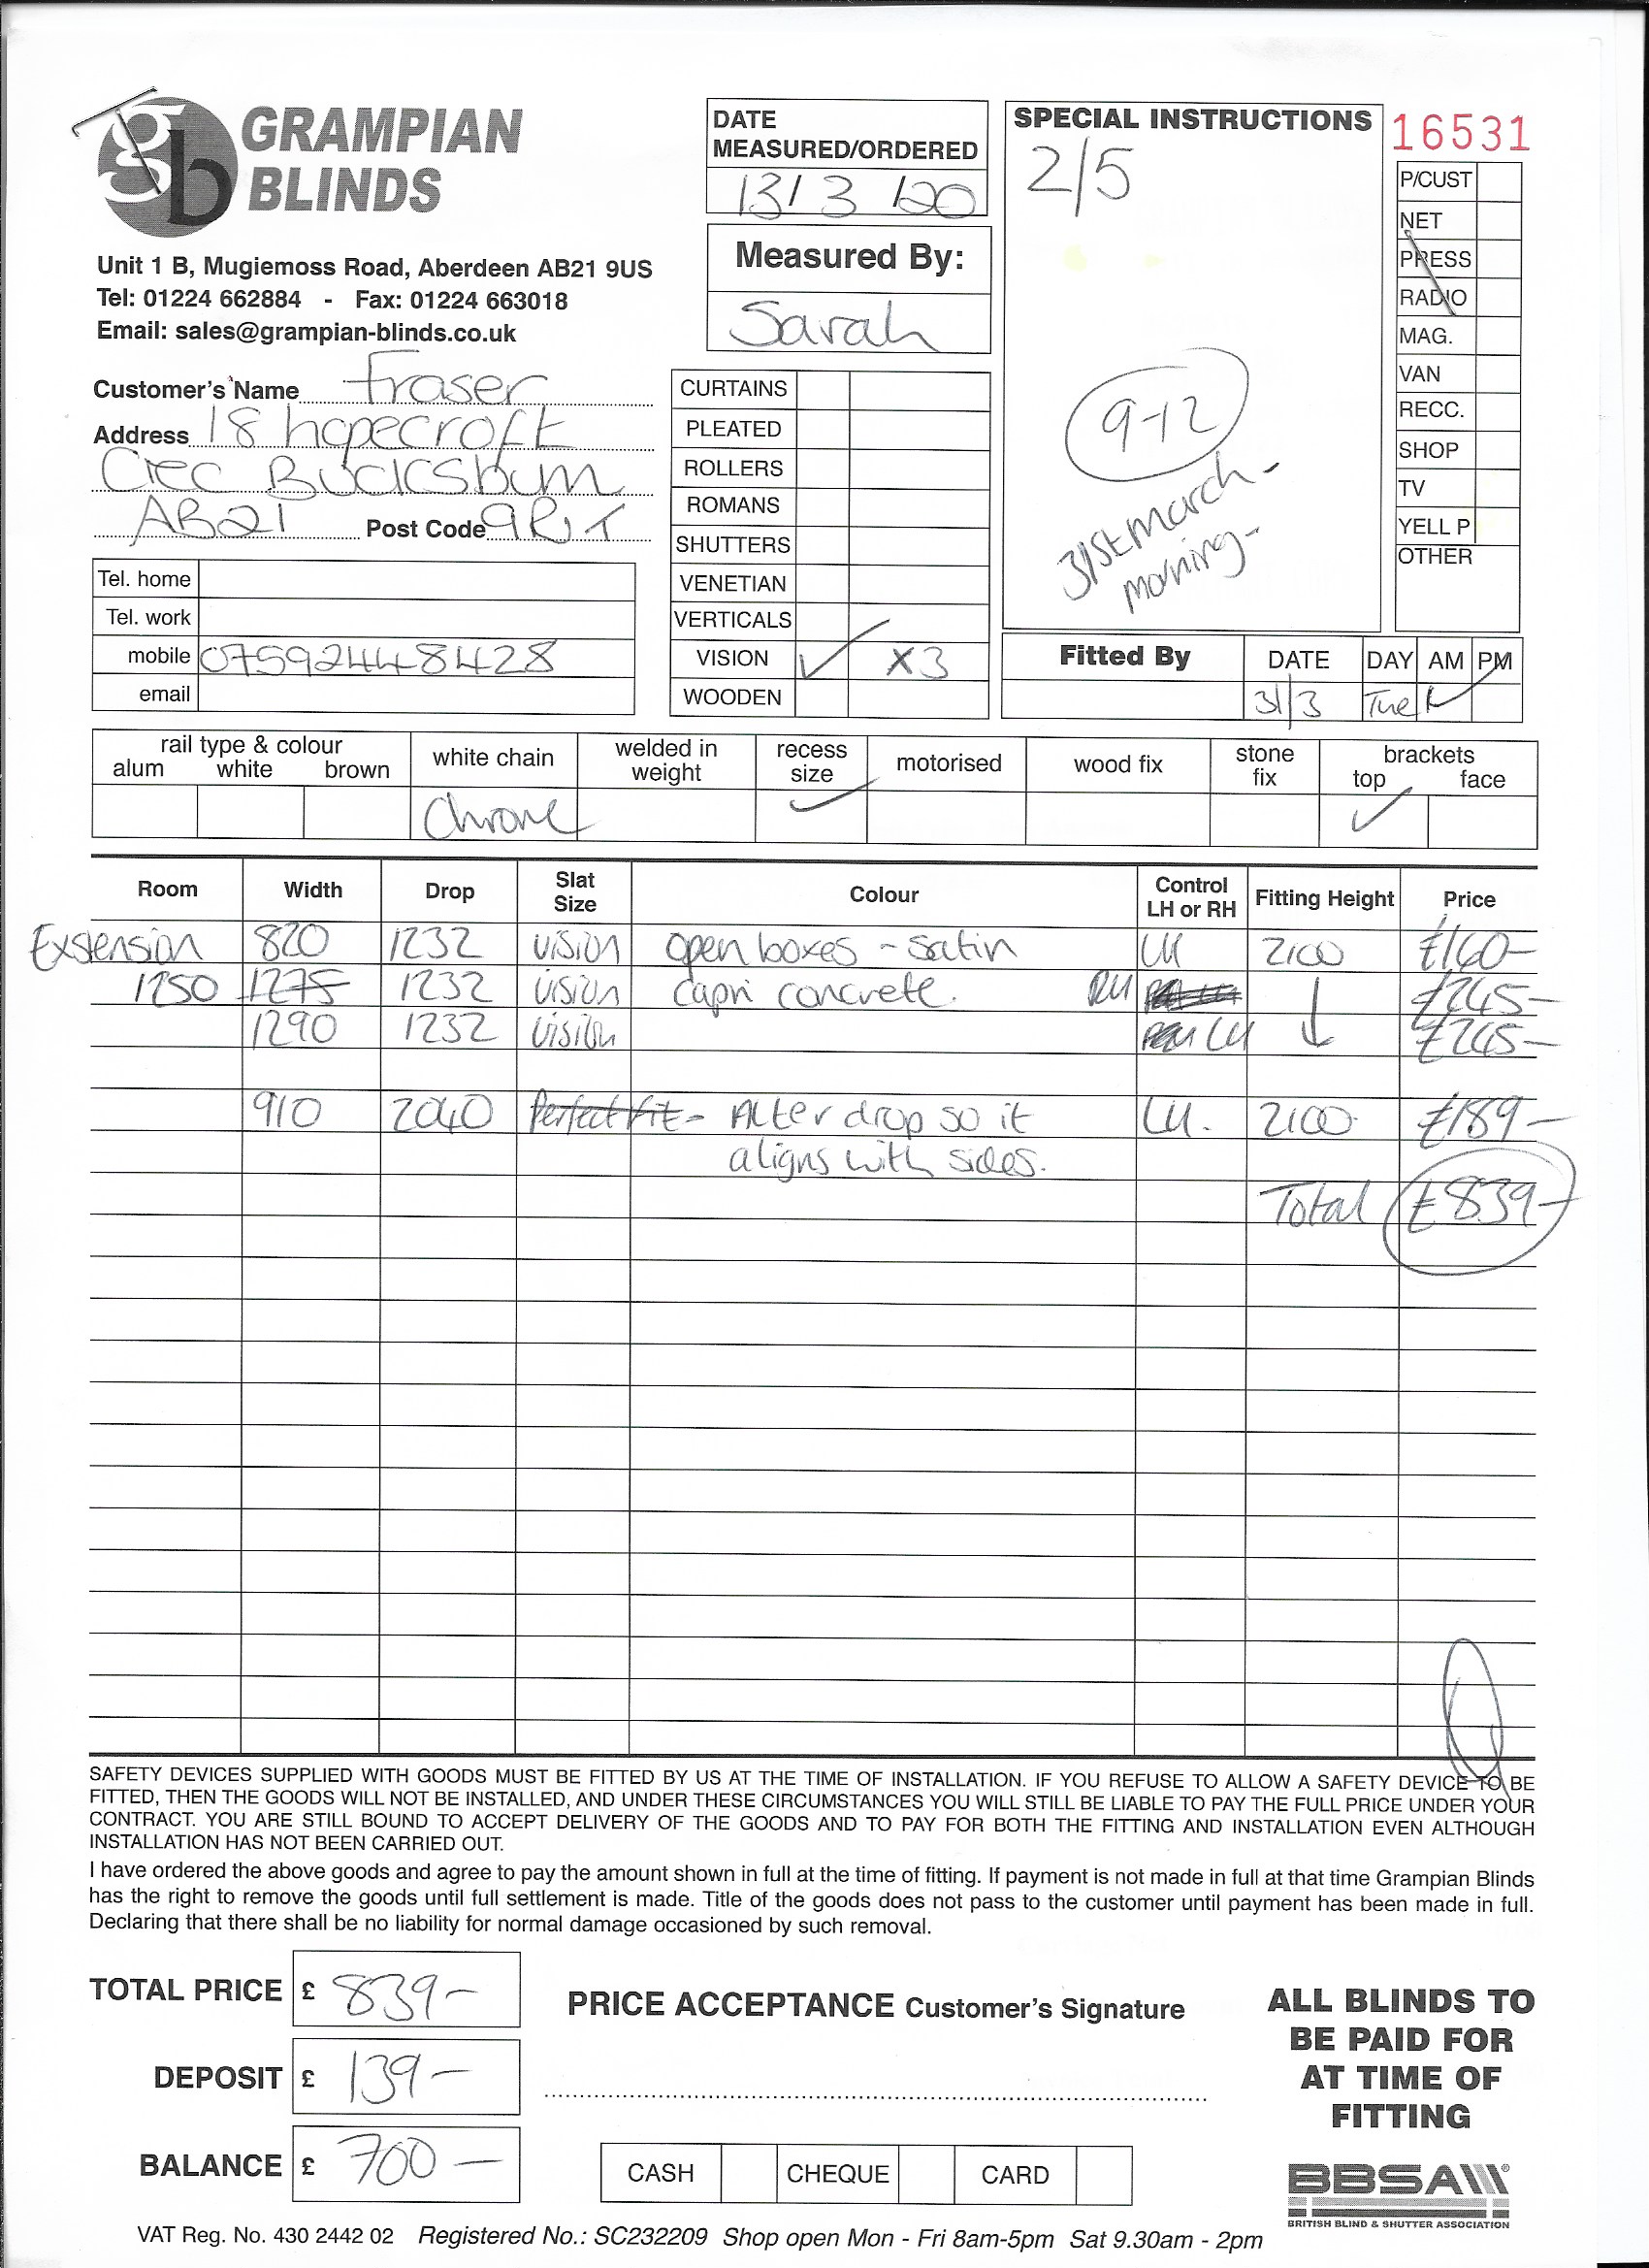 gb GRAMPIAN BLINDS
Unit 1 B, Mugiemoss Road, Aberdeen AB21 9US
Tel: 01224 662884 - Fax: 01224 663018
Email: sales@grampian-blinds.co.uk
DATE
MEASURED/ORDERED
13/3/20
Measured By:
Sarah
SPECIAL INSTRUCTIONS
2/5
9-12
31st March -
morning -
16531
P/CUST
NET
PRESS
RADIO
MAG.
VAN
RECC.
SHOP
TV
YELL P
OTHER
Customer's Name Fraser
Address 18 hopecroft
Bucksburn
AB21 Post Code 9RT
Tel. home
Tel. work
mobile 07592448428
email
CURTAINS
PLEATED
ROLLERS
ROMANS
SHUTTERS
VENETIAN
VERTICALS
VISION ✓ X3
WOODEN
Fitted By DATE DAY AM PM
31/3 Tue ✓
rail type & colour
alum white brown
white chain
welded in weight
recess size
motorised
wood fix
stone fix
brackets
top face
Chrome ✓ ✓
Room Width Drop Slat Size Colour Control LH or RH Fitting Height Price
Exstension 820 1232 vision open boxes - satin LH 2100 £160-
1250 1275 1232 vision capri concrete. RH £245-
1290 1232 vision LH £245-
910 2040 Perfect fit - Alter drop so it LH. 2100 £189-
aligns with sides.
Total £839-
SAFETY DEVICES SUPPLIED WITH GOODS MUST BE FITTED BY US AT THE TIME OF INSTALLATION. IF YOU REFUSE TO ALLOW A SAFETY DEVICE TO BE
FITTED, THEN THE GOODS WILL NOT BE INSTALLED, AND UNDER THESE CIRCUMSTANCES YOU WILL STILL BE LIABLE TO PAY THE FULL PRICE UNDER YOUR
CONTRACT. YOU ARE STILL BOUND TO ACCEPT DELIVERY OF THE GOODS AND TO PAY FOR BOTH THE FITTING AND INSTALLATION EVEN ALTHOUGH
INSTALLATION HAS NOT BEEN CARRIED OUT.
I have ordered the above goods and agree to pay the amount shown in full at the time of fitting. If payment is not made in full at that time Grampian Blinds
has the right to remove the goods until full settlement is made. Title of the goods does not pass to the customer until payment has been made in full.
Declaring that there shall be no liability for normal damage occasioned by such removal.
TOTAL PRICE £ 839-
DEPOSIT £ 139-
BALANCE £ 700-
PRICE ACCEPTANCE Customer's Signature
CASH CHEQUE CARD
ALL BLINDS TO
BE PAID FOR
AT TIME OF
FITTING
BBSA
BRITISH BLIND & SHUTTER ASSOCIATION
VAT Reg. No. 430 2442 02 Registered No.: SC232209 Shop open Mon - Fri 8am-5pm Sat 9.30am - 2pm